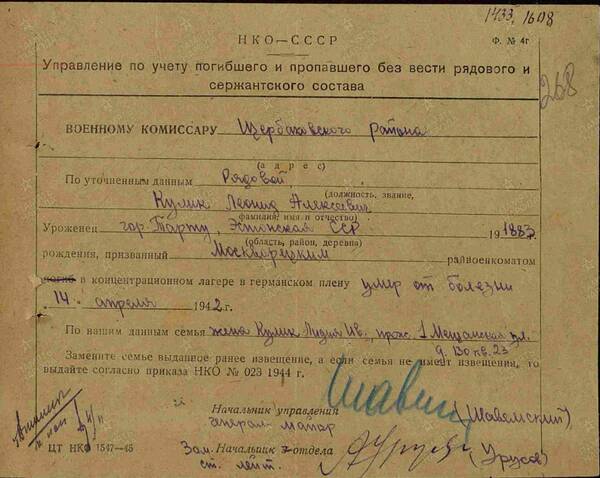 1433, 1608
НКО—СССР
Ф. № 4г
Управление по учету погибшего и пропавшего без вести рядового и
сержантского состава
268
ВОЕННОМУ КОМИССАРУ Щербаковского района
(адрес)
По уточненным данным Рядовой
(должность, звание,
Кулик Леонид Алексеевич
фамилия, имя и отчество)
Уроженец гор. Тарту, Эстонская ССР 1883
(область, район, деревня)
рождения, призванный Москворецким райвоенкоматом
погиб в концентрационном лагере в германском плену умер от болезни
14 апреля 1942 г.
По нашим данным семья жена Кулик Лидия Ив., прож. 1 Мещанская ул.
д. 130 кв. 23
Замените семье выданное ранее извещение, а если семья не имеет извещения, то
выдайте согласно приказа НКО № 023 1944 г.
Начальник управления
генерал-майор (Шавельский)
Зам. Начальник 7 отдела
ст. лейт. (Урусов)
ЦТ НКО 1547—45